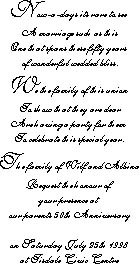 Now-a-days it's rare to see
A marriage such as this
One that spans these fifty years
of wonderful wedded bliss.
We the family of this union
To show that they are dear
Are having a party for them
To celebrate this special year.
The family of Wilf and Albina
Request the honour of
your presence at
our parents 50th Anniversary
on Saturday July 25th 1998
at Tisdale Civic Centre